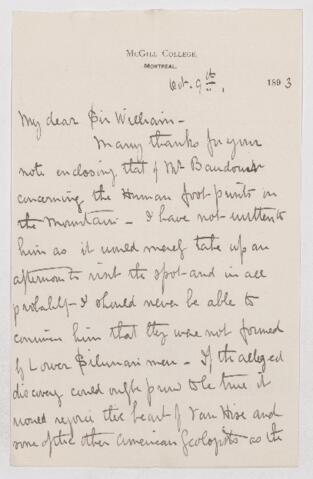 McGILL COLLEGE,
MONTREAL.
Oct. 9th, 1893
My dear Sir William –
Many thanks for your
note enclosing that of Mr
concerning the Human foot prints on
the Mountain – I have not written to
him as it would merely take up an
afternoon to visit the spot and in all
probably I should never be able to
convince him that they were not formed
by Lower Silurian men – If the alleged
discovery could only prove to be true it
would rejoice the heart of Van Hise and
some of the other American Geologists as the